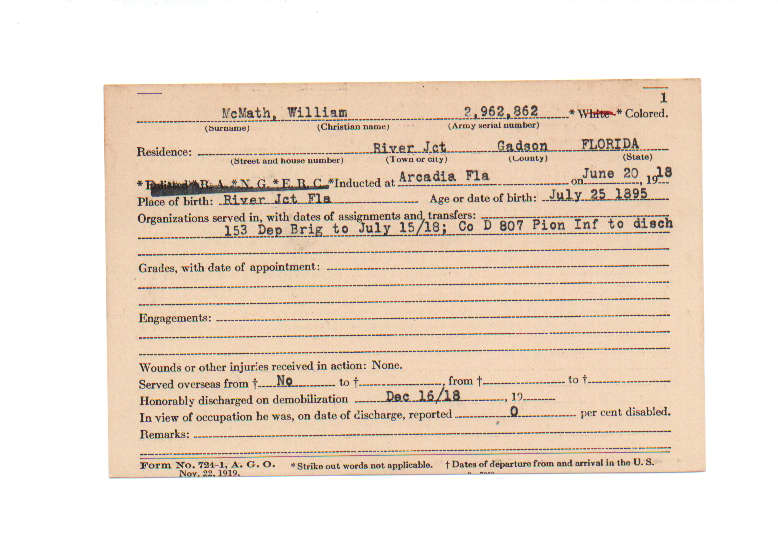 1
McMath, William 2,962,862 * White * Colored.
(Surname) (Christian name) (Army serial number)
Residence: River Jct Gadson FLORIDA
(Street and house number) (Town or city) (County) (State)
* Enlisted * R. A. * N. G. * E. R. C. * Inducted at Arcadia Fla on June 20, 1918
Place of birth: River Jct Fla Age or date of birth: July 25 1895
Organizations served in, with dates of assignments and transfers:
153 Dep Brig to July 15/18; Co D 807 Pion Inf to disch
Grades, with date of appointment:
Engagements:
Wounds or other injuries received in action: None.
Served overseas from † No to †, from † to †
Honorably discharged on demobilization Dec 16/18, 19
In view of occupation he was, on date of discharge, reported 0 per cent disabled.
Remarks:
Form No. 724-1, A. G. O. * Strike out words not applicable. † Dates of departure from and arrival in the U. S.
Nov. 22, 1919.